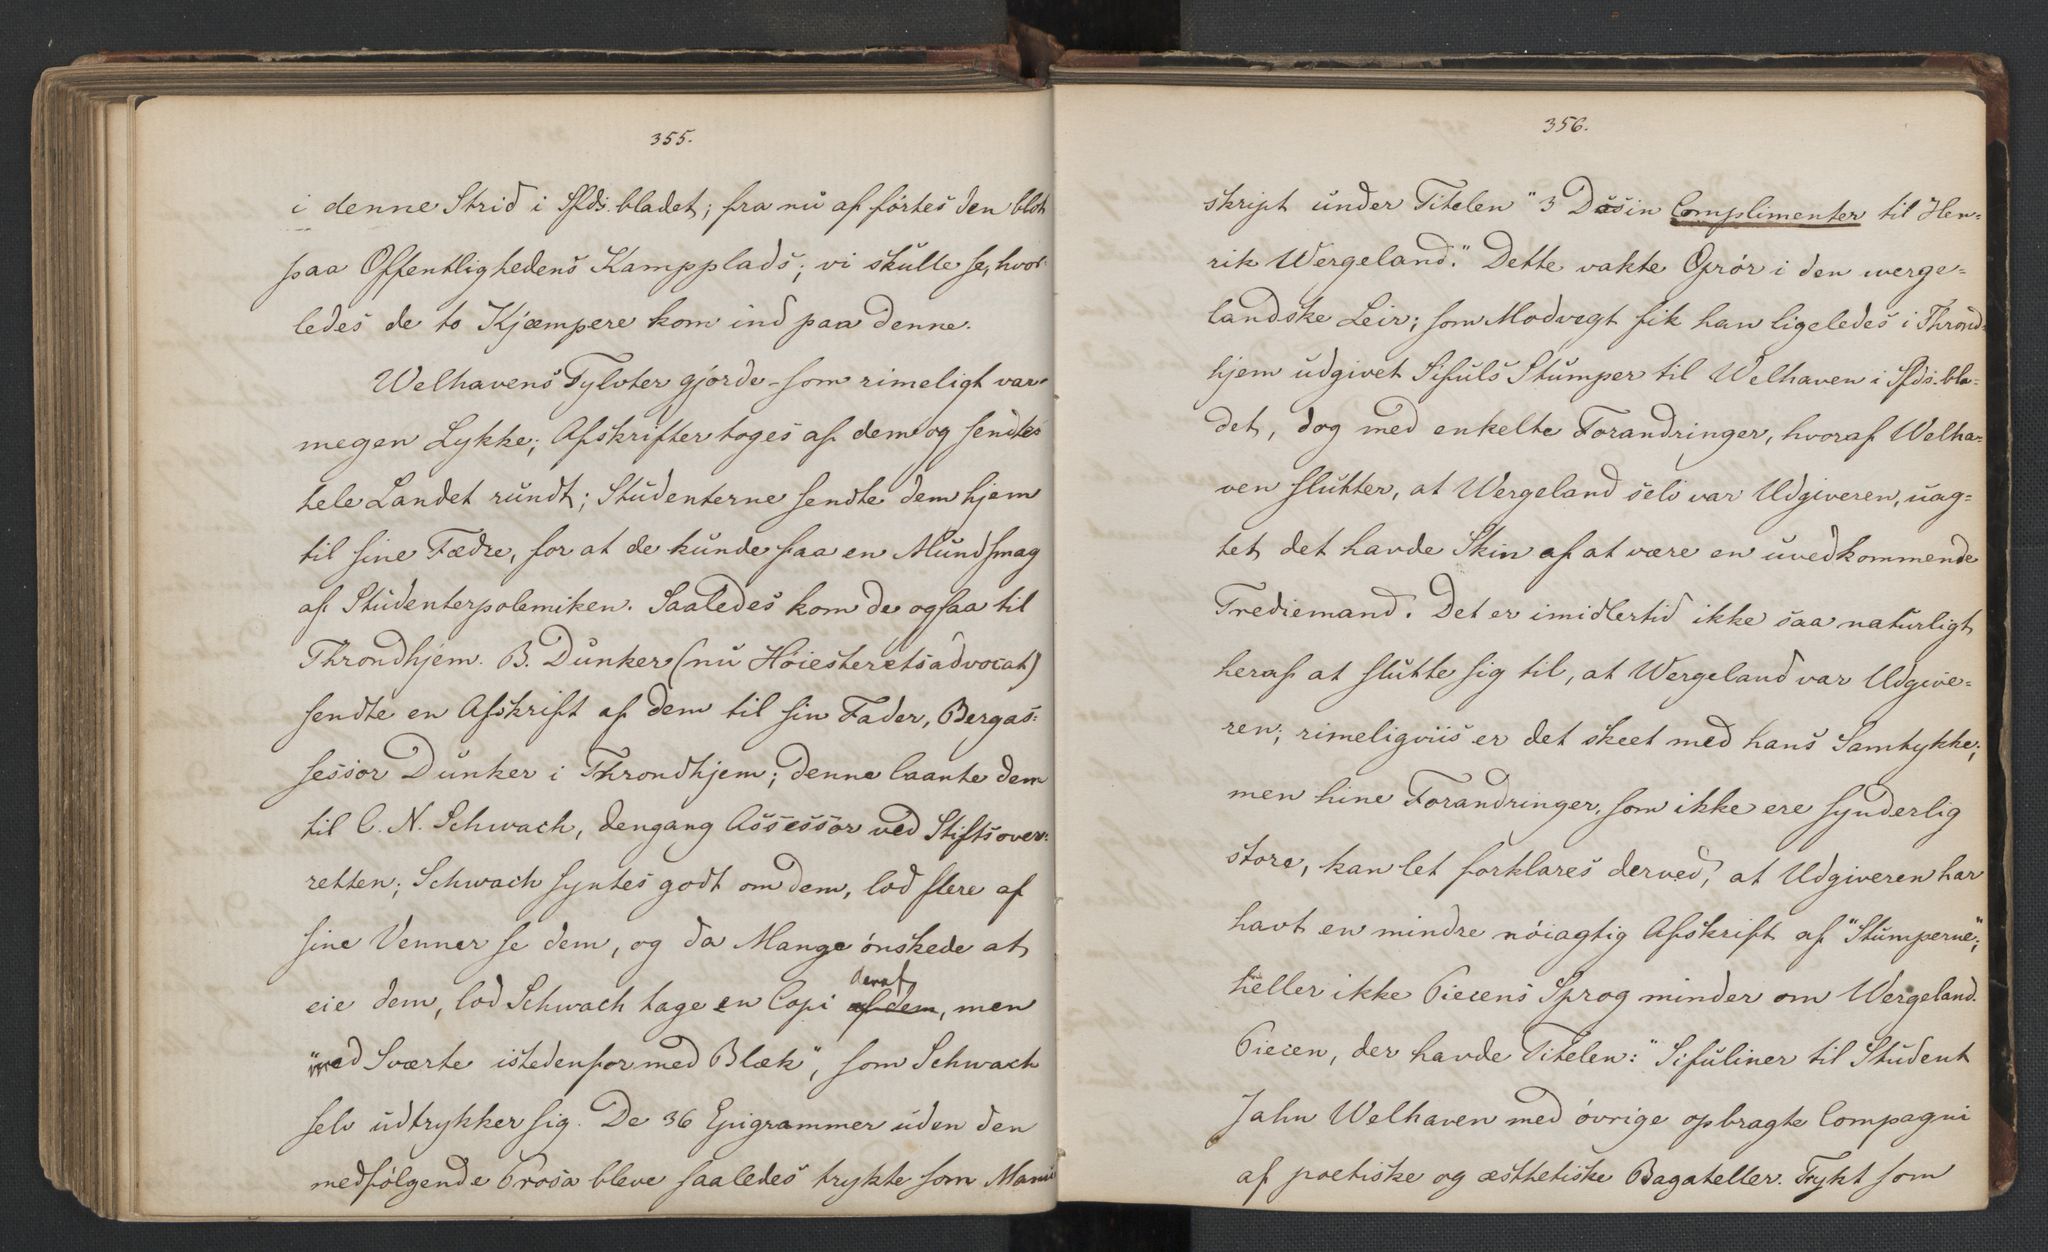 355.
i denne Strid i Sfds.bladet; fra nu af førtes den blot
paa Offentlighedens Kampplads; vi skulle se, hvor-
ledes de to Kjæmpere kom ind paa denne.
Welhavens Tylvter gjorde – som rimeligt var –
megen Lykke; Afskrifter toges af dem og sendtes
hele Landet rundt; Studenterne sendte dem hjem
til sine Fædre, for at de kunde faa en Mundsmag
af Studenterpolemiken. Saaledes kom de ogsaa til
Throndhjem. B. Dunker (nu Høiesteretsadvocat)
sendte en Afskrift af dem til sin Fader, Bergas-
sessor Dunker i Throndhjem; denne laante dem
til C. N. Schwach, dengang Assessor ved Stiftsover-
retten; Schwach syntes godt om dem, lod flere af
sine Venner se dem, og da Mange ønskede at
eie dem, lod Schwach tage en Copi af dem deraf, men
"med Sværte istedenfor med Blæk", som Schwach
selv udtrykker sig. De 36 Epigrammer uden den
medfølgende Prosa bleve saaledes trykte som Manu-
356.
skript under Titelen "3 Dusin Complimenter til Hen-
rik Wergeland." Dette vakte Oprør i den werge-
landske Leir; som Modvegt fik han ligeledes i Thrond-
hjem udgivet Sifuls Stumper til Welhaven i Sfds.bla-
det, dog med enkelte Forandringer, hvoraf Welha-
ven slutter, at Wergeland selv var Udgiveren, uag-
tet det havde Skin af at være en uvedkommende
Trediemand. Det er imidlertid ikke saa naturligt
heraf at slutte sig til, at Wergeland var Udgive-
ren; rimeligviis er det skeet med hans Samtykke;
men hine Forandringer, som ikke ere synderlig
store, kan let forklares derved, at Udgiveren har
havt en mindre nøiagtig Afskrift af "Stumperne";
heller ikke Piecens Sprog minder om Wergeland.
Piecen, der havde Titelen: "Sifuliner til Student
Jahn Welhaven med øvrige opbragte Compagni
af poetiske og æsthetiske Bagateller. Trykt som